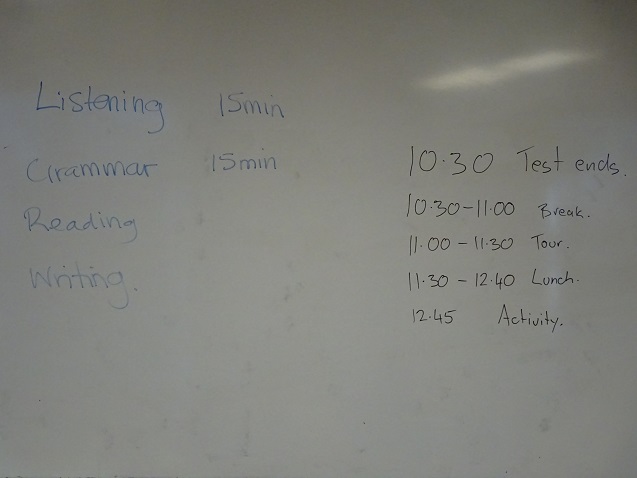 Listening 15min
Grammar 15min
Reading
Writing.
10.30 Test ends.
10.30-11:00 Break.
11.00 - 11.30 Tour.
11.30 - 12.40 Lunch.
12.45 Activity.